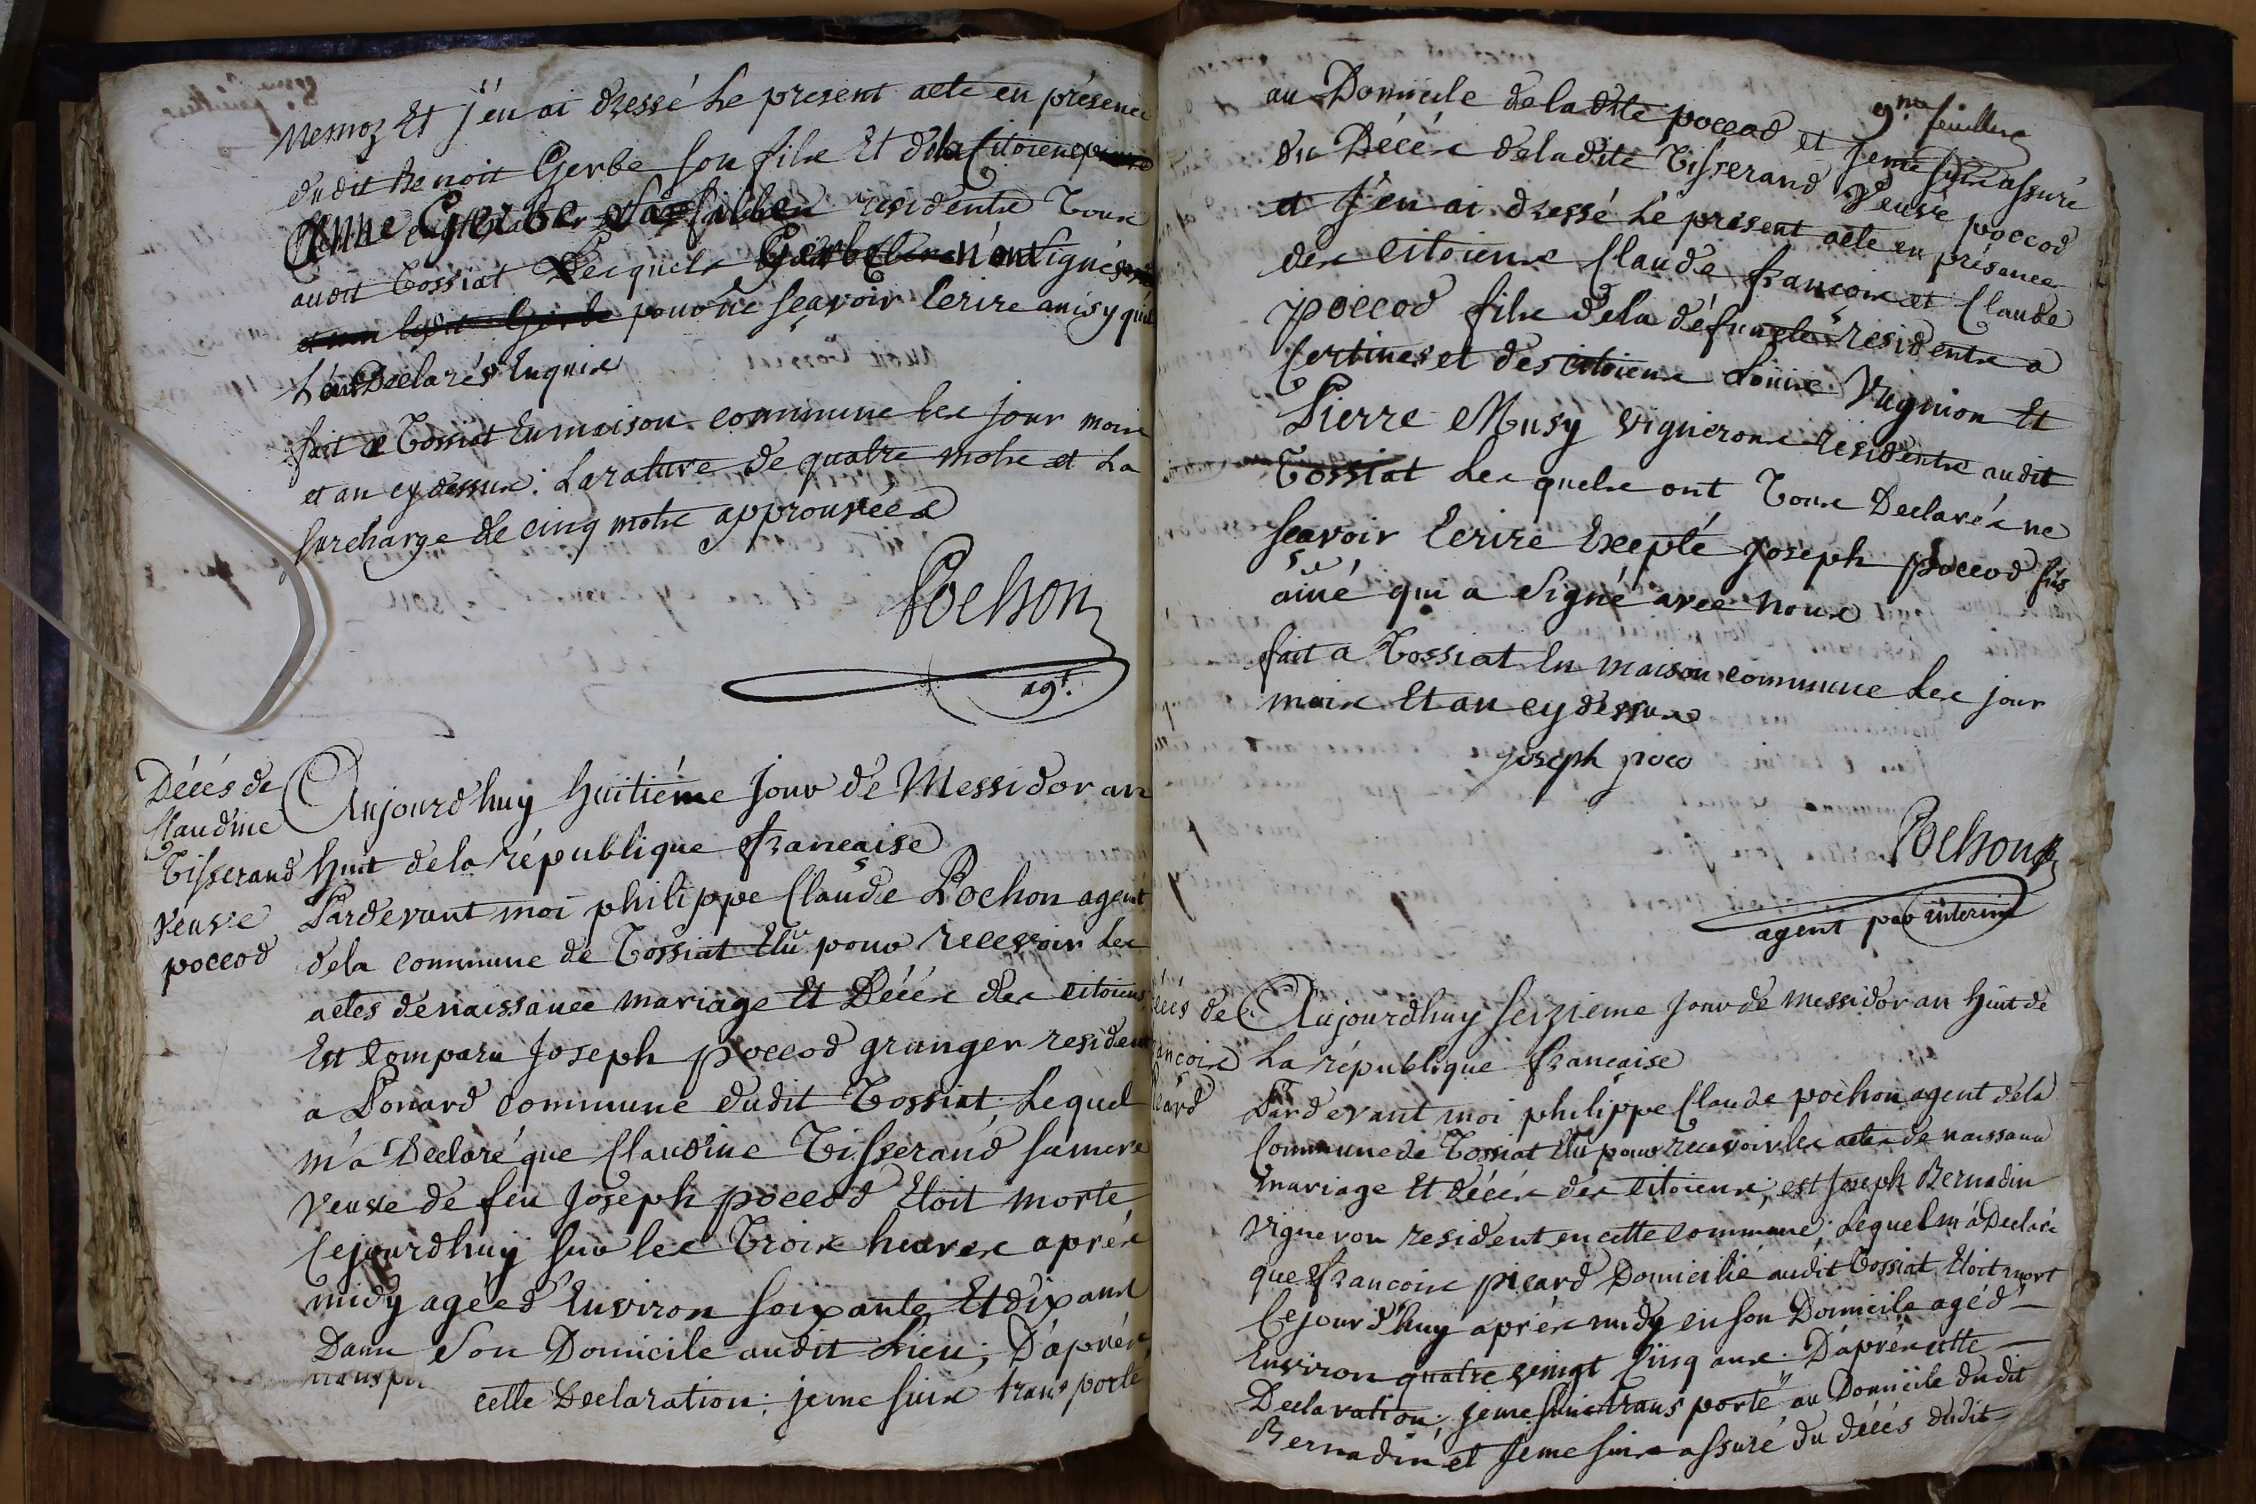 Mermoz Et j'en ai dressé Le present acte en présence
dudit Benoit Gerbe son fils Et de la Citoiene
Anne Gerbe residents Tous
audit Tossiat Lesquels n'ont Signés
pour ne Sçavoir Ecrire ainsy qu'ils
L'ont Declarés Enquis
fait a Tossiat En maison commune les jour mois
et an cy dessus. La rature de quatre mots et La
surcharge de cinq mots approuvées
Pochon
agt.
Décés de
Claudine
Tisserand
Veuve
poccod
Aujourdhuy huitiéme Jour de Messidor an
huit de la république française
Pardevant moi philippe Claude Pochon agent
de la commune de Tossiat Elu pour recevoir les
actes de naissance mariage Et Décés des citoiens
Est Comparu Joseph poccod granger resident
a Ponard commune dudit Tossiat. Lequel
m'a Declaré que Claudine Tisserand sa mere
Veuve de feu Joseph poccod Etoit morte
Cejourdhuy sur les Trois heures aprés
midy agée d'Environ soixante Et dix ans
Dans Son Domicile audit Lieu; D'aprés
cette Declaration; je me suis transporté
9.me feuillet
au Domicile de la dite poccod et Je me suis assuré
du Décés de la dite Tisserand Veuve poccod
et J'en ai dressé Le present acte en présance
des Citoiens Claude françois et Claude
poccod fils de la défuncte residents a
Certines et des citoiens Louis Vugnion Et
Pierre Musy Vignerons résidents audit
Tossiat Lesquels ont Tous Declarés ne
sçavoir Ecrire Excepté Joseph poccod fils
ainé qui a Signé avec nous
fait a Tossiat En maison commune Les jour
mois Et an cy dessus
joseph poco
Pochon
agent par interim
Décés de
françois
picard
Aujourdhuy seizieme Jour de Messidor an huit de
La république française
Pardevant moi philippe Claude pochon agent de la
Commune de Tossiat Elu pour recevoir les actes de naissance
mariage Et décés des Citoiens, est Joseph Bernadin
Vigneron resident en cette commune. Lequel m'a Declaré
que françois picard Domicilié audit Tossiat Etoit mort
Cejourd'huy aprés midy en son Domicile agé d'
Environ quatre vingt Cinq ans. D'aprés cette
Declaration; je me suis transporté au Domicile dudit
Bernadin et Je me suis assuré du décés dudit